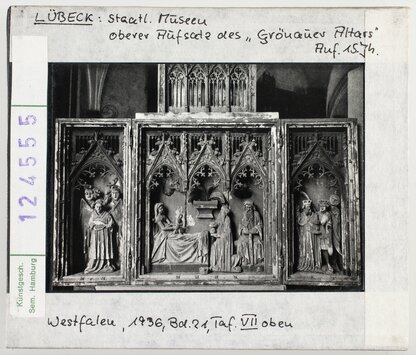 LÜBECK: Staatl. Museen
oberer Aufsatz des „Grönauer Altars"
Anf. 15. Jh.
124555
Kunstgesch.
Sem. Hamburg
Westfalen, 1936, Bd. 21, Taf. VII oben